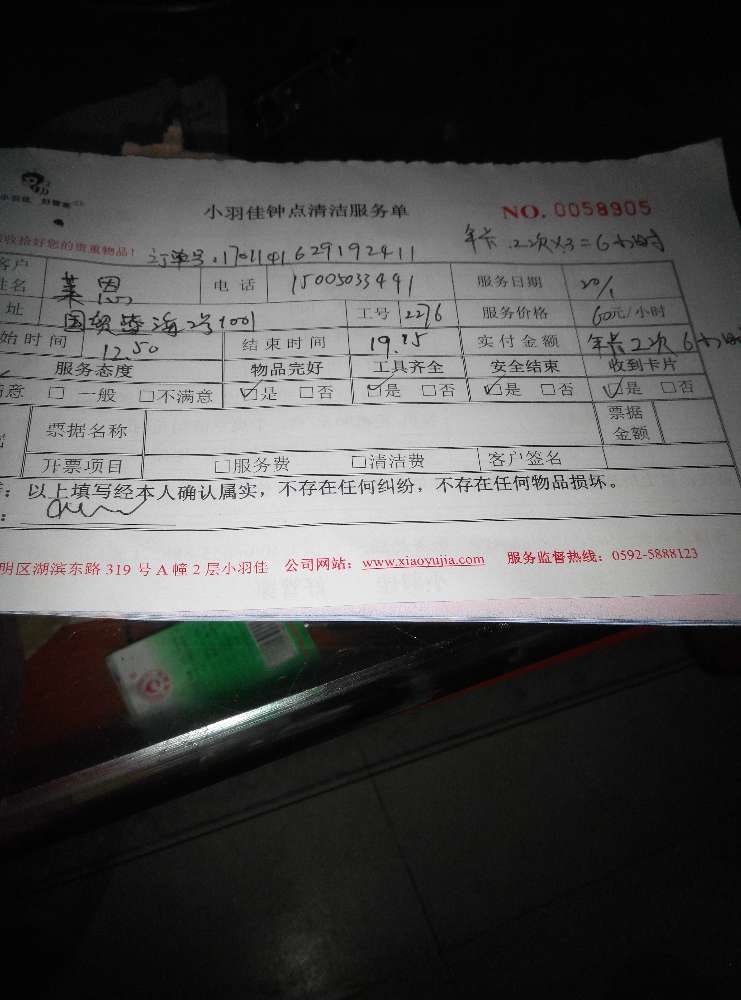 小羽佳 好管家
小羽佳钟点清洁服务单 NO. 0058905
收拾好您的贵重物品! 订单号:1701141629192411 年卡.2次×3=6小时
客户
姓名 莱恩 电话 15005033491 服务日期 20/1
址 国贸蓝海2号1001 工号 2276 服务价格 60元/小时
始时间 12.50 结束时间 19.15 实付金额 年卡2次6小时
服务态度 物品完好 工具齐全 安全结束 收到卡片
意 □ 一般 □不满意 ☑是 □否 ☑是 □否 ☑是 □否 ☑是 □否
票据名称 票据金额
开票项目 □服务费 □清洁费 客户签名
: 以上填写经本人确认属实,不存在任何纠纷,不存在任何物品损坏。
明区湖滨东路 319 号 A 幢 2 层小羽佳 公司网站: www.xiaoyujia.com 服务监督热线: 0592-5888123